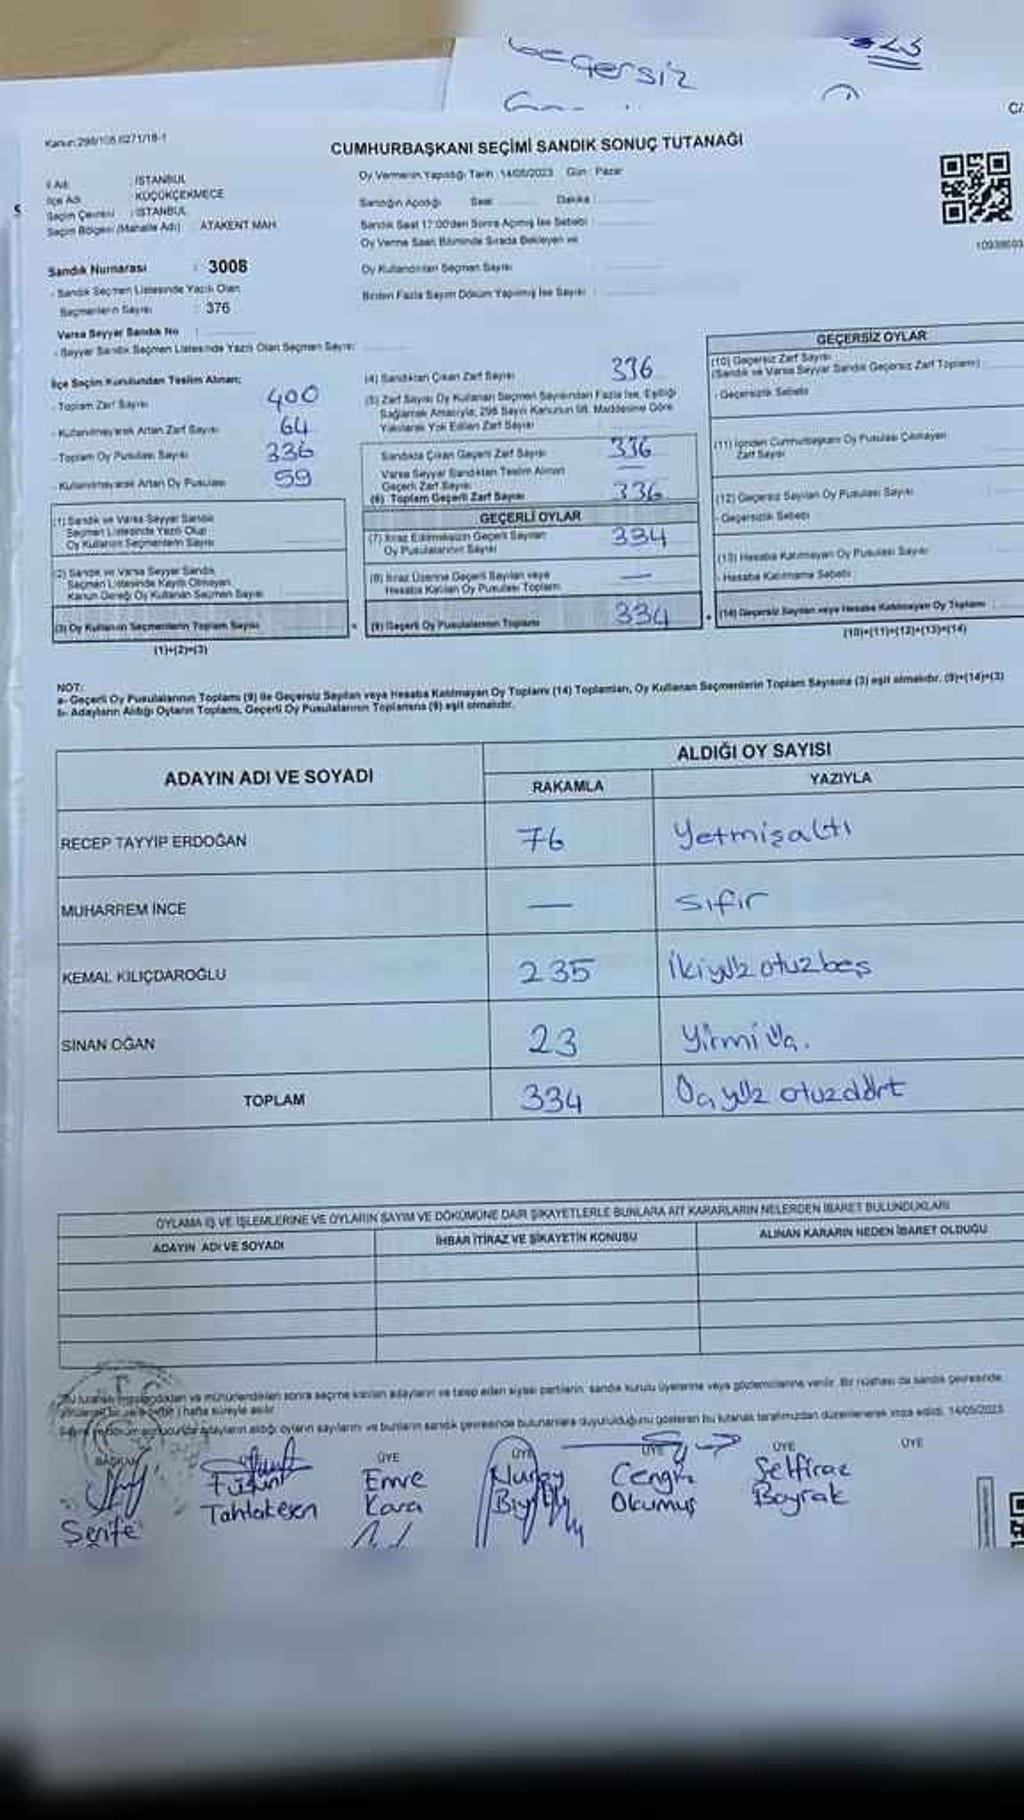 geçersiz
23
Kanun: 298/105 6271/18-1
C/
CUMHURBAŞKANI SEÇİMİ SANDIK SONUÇ TUTANAĞI
İl Adı : İSTANBUL
İlçe Adı : KÜÇÜKÇEKMECE
Seçim Çevresi : İSTANBUL
Seçim Bölgesi (Mahalle Adı) ATAKENT MAH.
Oy Vermenin Yapıldığı Tarih 14/05/2023 Gün : Pazar
Sandığın Açıldığı Saat Dakika
Sandık Saat 17:00'den Sonra Açılmış İse Sebebi
Oy Verme Saati Bitiminde Sırada Bekleyen ve
Oy Kullandırılan Seçmen Sayısı
Birden Fazla Sayım Döküm Yapılmış İse Sayısı :
Sandık Numarası : 3008
- Sandık Seçmen Listesinde Yazılı Olan
Seçmenlerin Sayısı : 376
Varsa Seyyar Sandık No :
- Seyyar Sandık Seçmen Listesinde Yazılı Olan Seçmen Sayısı:
İlçe Seçim Kurulundan Teslim Alınan;
- Toplam Zarf Sayısı 400
- Kullanılmayarak Artan Zarf Sayısı 64
- Toplam Oy Pusulası Sayısı 336
- Kullanılmayarak Artan Oy Pusulası 59
(1) Sandık ve Varsa Seyyar Sandık
Seçmen Listesinde Yazılı Olup
Oy Kullanan Seçmenlerin Sayısı
(2) Sandık ve Varsa Seyyar Sandık
Seçmen Listesinde Kayıtlı Olmayan
Kanun Gereği Oy Kullanan Seçmen Sayısı
(3) Oy Kullanan Seçmenlerin Toplam Sayısı
(1)+(2)=(3)
(4) Sandıktan Çıkan Zarf Sayısı 336
(5) Zarf Sayısı Oy Kullanan Seçmen Sayısından Fazla İse, Eşitliği
Sağlamak Amacıyla, 298 Sayılı Kanunun 98. Maddesine Göre
Yakılarak Yok Edilen Zarf Sayısı
Sandıkta Çıkan Geçerli Zarf Sayısı 336
Varsa Seyyar Sandıktan Teslim Alınan
Geçerli Zarf Sayısı —
(6) Toplam Geçerli Zarf Sayısı 336
GEÇERLİ OYLAR
(7) İtiraz Edilmeksizin Geçerli Sayılan
Oy Pusulalarının Sayısı 334
(8) İtiraz Üzerine Geçerli Sayılan veya
Hesaba Katılan Oy Pusulası Toplamı —
(9) Geçerli Oy Pusulalarının Toplamı 334
GEÇERSİZ OYLAR
(10) Geçersiz Zarf Sayısı
(Sandık ve Varsa Seyyar Sandık Geçersiz Zarf Toplamı)
- Geçersizlik Sebebi
(11) İçinden Cumhurbaşkanı Oy Pusulası Çıkmayan
Zarf Sayısı
(12) Geçersiz Sayılan Oy Pusulası Sayısı
- Geçersizlik Sebebi
(13) Hesaba Katılmayan Oy Pusulası Sayısı
- Hesaba Katılmama Sebebi
(14) Geçersiz Sayılan veya Hesaba Katılmayan Oy Toplamı
(10)+(11)+(12)+(13)=(14)
NOT:
a- Geçerli Oy Pusulalarının Toplamı (9) ile Geçersiz Sayılan veya Hesaba Katılmayan Oy Toplamı (14) Toplamları, Oy Kullanan Seçmenlerin Toplam Sayısına (3) eşit olmalıdır. (9)+(14)=(3)
b- Adayların Aldığı Oyların Toplamı, Geçerli Oy Pusulalarının Toplamına (9) eşit olmalıdır.
ADAYIN ADI VE SOYADI
ALDIĞI OY SAYISI
RAKAMLA YAZIYLA
RECEP TAYYİP ERDOĞAN 76 Yetmişaltı
MUHARREM İNCE — Sıfır
KEMAL KILIÇDAROĞLU 235 İkiyüz otuzbeş
SİNAN OĞAN 23 Yirmi üç.
TOPLAM 334 Üçyüz otuzdört
OYLAMA İŞ VE İŞLEMLERİNE VE OYLARIN SAYIM VE DÖKÜMÜNE DAİR ŞİKAYETLERLE BUNLARA AİT KARARLARIN NELERDEN İBARET BULUNDUKLARI
ADAYIN ADI VE SOYADI İHBAR İTİRAZ VE ŞİKAYETİN KONUSU ALINAN KARARIN NEDEN İBARET OLDUĞU
14/05/2023
BAŞKAN ÜYE ÜYE ÜYE ÜYE ÜYE
Şerife
Füsun
Tahtakesen
Emre
Kara
Nuray
Cengiz
Okumuş
Selfiraz
Bayrak